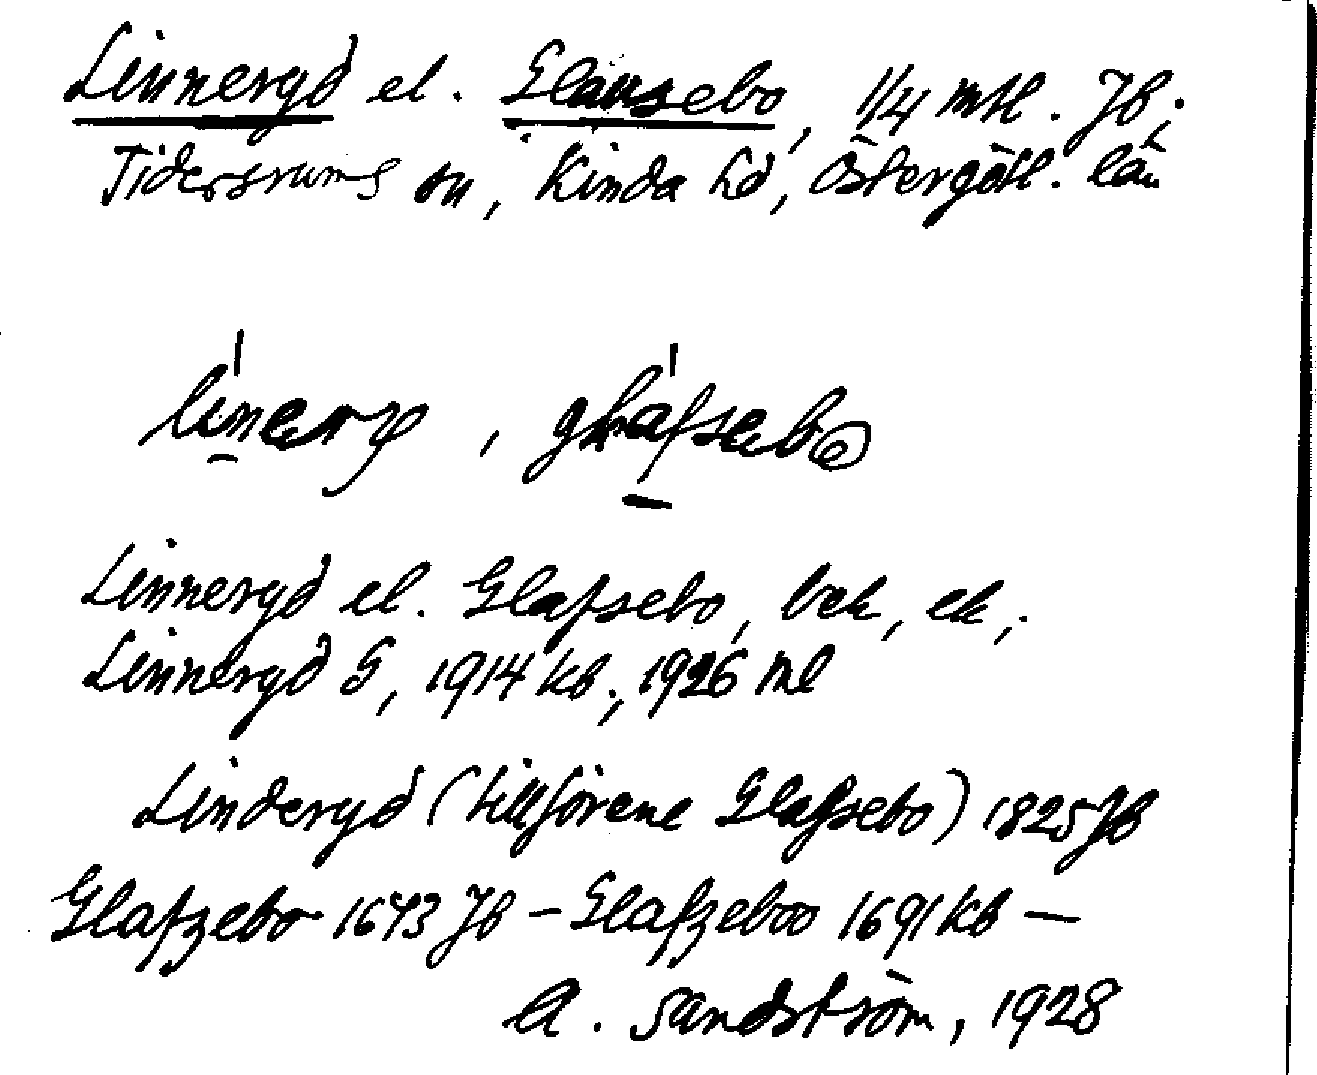 Linneryd el. Glansebo, 1/4 mtl. Jb.;
Tidersrums sn, Kinda hd, Östergötl. län
Linnergd el. Glafsebo, bek, ek,;
Linnergd G, 1914 kb., 1926 ml
Lindergd (tillförene Glafsebo) 1825 Jb
Glafzebo 1643 Jb – Glafzeboo 1691 kb –
A. Sandström, 1928